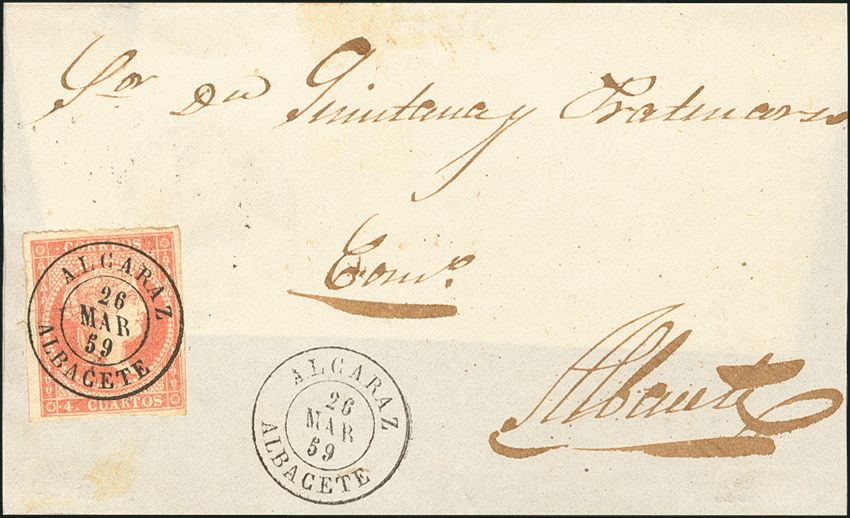 Sor dn Quintana y
Como
Albacete
CORREOS
ALCARAZ
26
MAR
59
ALBACETE
4 CUARTOS
ALCARAZ
26
MAR
59
ALBACETE